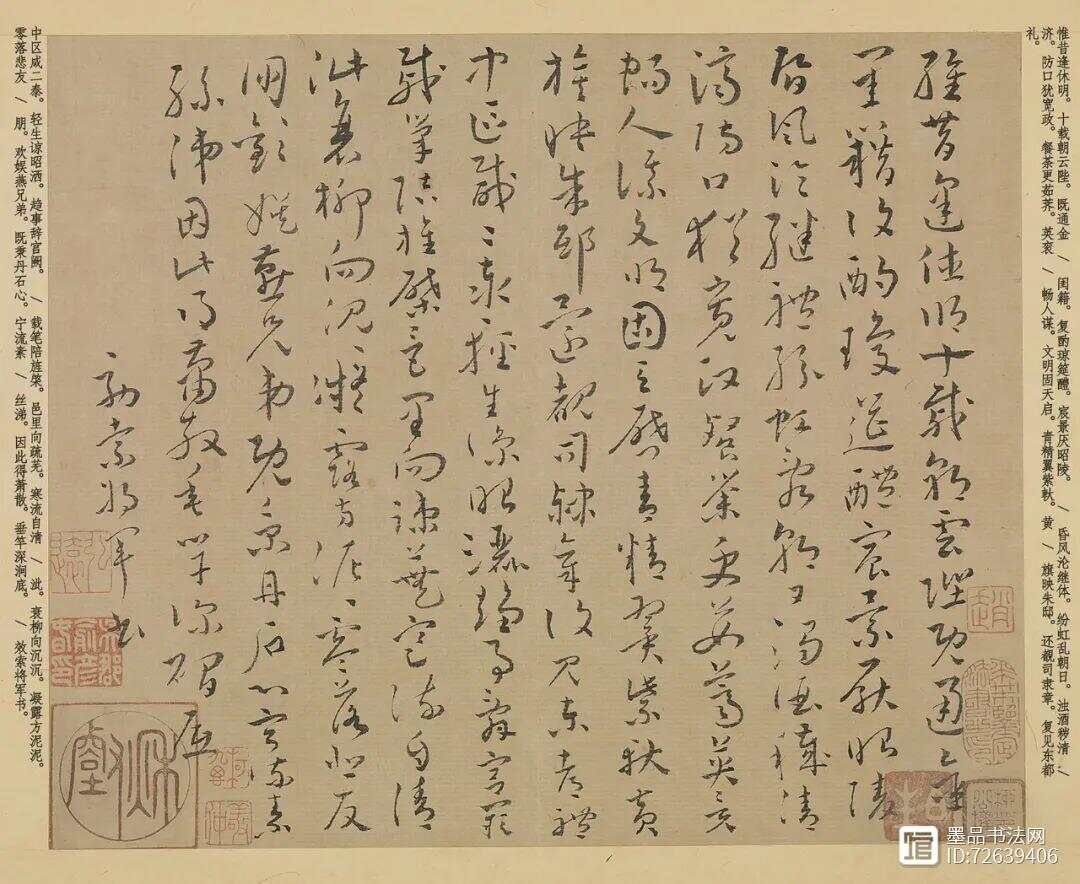 惟昔逢休明。十载朝云陛。既通金 / 闺籍。复酌琼筵醴。宸景厌昭陵。 / 昏风沦继体。纷虹乱朝日。浊酒秽清 /
济。防口犹宽政。餐茶更茹荠。英衮 \ 畅人谋。文明固天启。青精翼紫軑。黄 \ 旗映朱邸。还觏司隶章。复见东都
礼。
惟昔逢休明十載朝雲陛既通金
閨籍復酌瓊筵醴宸景厭昭陵
昏風淪繼體紛虹亂朝日濁酒穢清
濟防口猶寬政餐荼更茹薺英衮
暢人謀文明固天啓青精翼紫軑黄
旗映朱邸還覩司隸章復見東都禮
中區咸二泰輕生諒昭灑趨事辭宫闕
載筆陪旌棨邑里向疎蕪寒流自清
泚衰柳向沉沉凝露方泥泥零落悲友
朋歡娱燕兄弟既秉丹石心寧流素
絲涕因此得蕭散垂竿深澗底
効索將軍書
中区咸二泰。轻生谅昭洒。趋事辞宫阙。 / 载笔陪旌棨。邑里向疏芜。寒流自清 \ 泚。衰柳向沉沉。凝露方泥泥。
零落悲友 \ 朋。欢娱燕兄弟。既秉丹石心。宁流素 \ 丝涕。因此得萧散。垂竿深涧底。 \ 效索将军书。
墨品书法网
ID:72639406